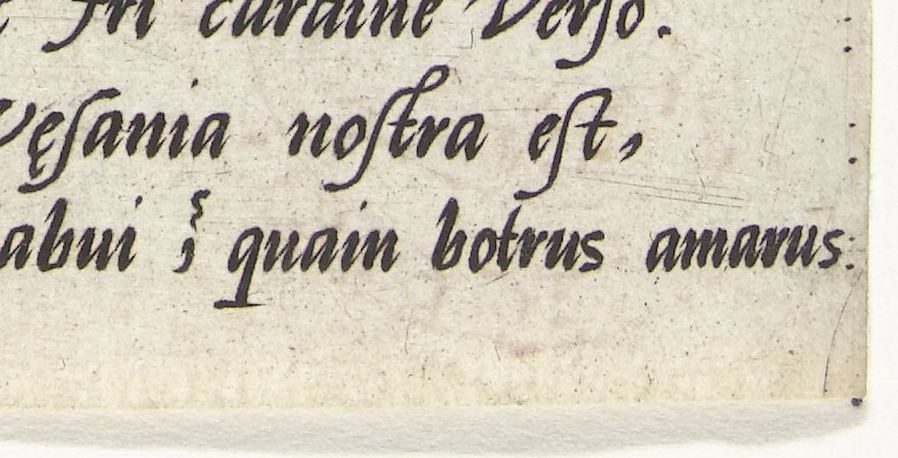 fri cardine Verſo.
Vęſania noſtra eſt,
abui quain botrus amarus: